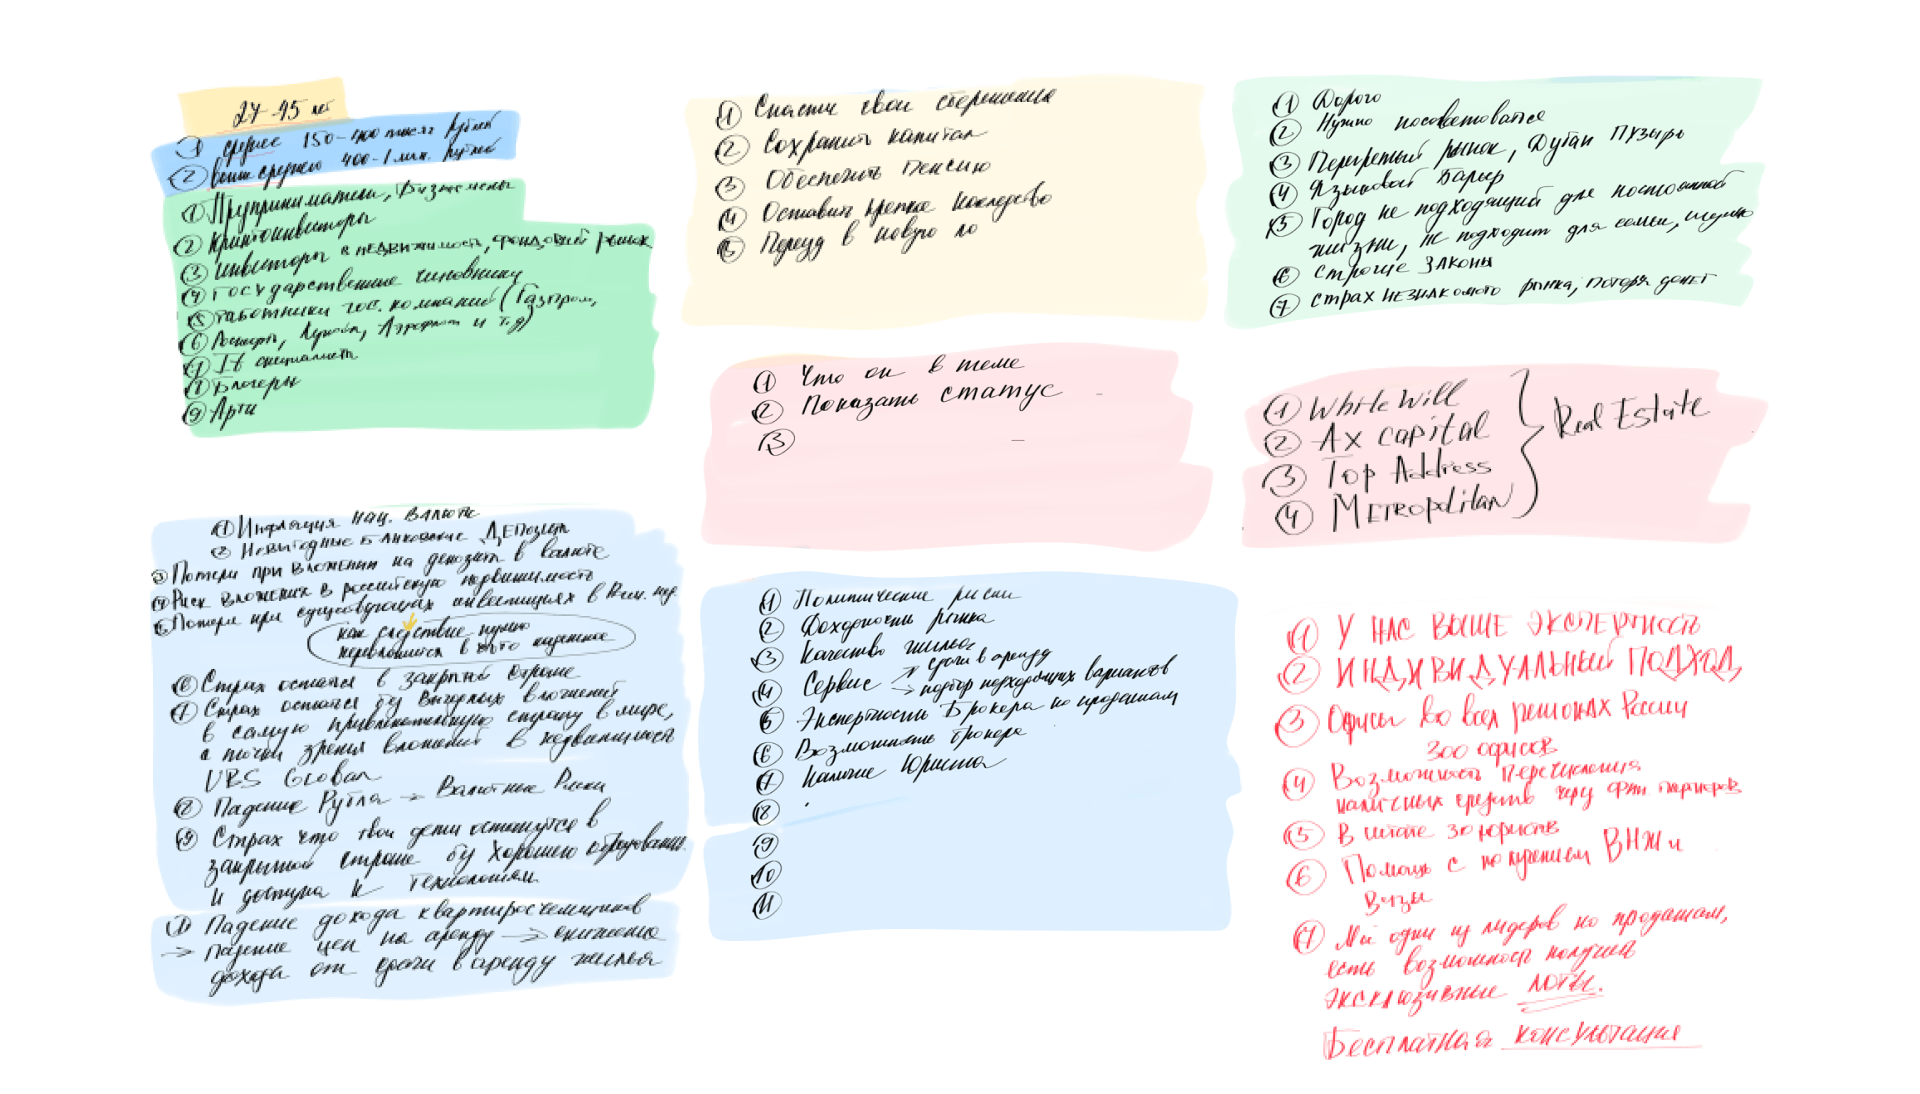 27-45 лет
① среднее 150-400 тысяч рублей
② выше среднего 400-1 млн. рублей
① Предприниматели, Бизнесмены
② Криптоинвесторы
③ Инвесторы в недвижимость, фондовый рынок
④ Государственные чиновники
⑤ Работники гос. компаний (Газпром,
⑥ Роснефть, Лукойл, Аэрофлот и т.д)
⑦ It специалисты
⑧ Блогеры
⑨ Арти
① Инфляция нац. валюты
② Невыгодные Банковские Депозиты
③ Потери при вложении на депозиты в валюте
④ Риск вложения в российскую недвижимость
⑤ Потери при существующих инвестициях в
как следствие нужно
переложиться в что-то надежное
⑥ Страх остаться в закрытой стране
⑦ Страх остаться без выгодных вложений
в самую привлекательную страну в мире,
с точки зрения вложений в недвижимость
UBS Global
⑧ Падение Рубля → Валютные Риски
⑨ Страх что твои дети останутся в
закрытой стране без хорошего образования
и доступа к технологиям
① Падение дохода квартиросъемщиков
→ падение цен на аренду → снижение
дохода от сдачи в аренду жилья
① Спасти свои сбережения
② Сохранить капитал
③ Обеспечить пенсию
④ Оставить крепкое наследство
⑤ Переезд в новую ло
① Что он в теме
② Показать статус
③
① Политические риски
② Доходность рынка
③ Качество жилья
④ Сервис → сдачи в аренду
→ подбор подходящих вариантов
⑤ Экспертность Брокера по продажам
⑥ Возможность брокера
⑦ Наличие Юриста
⑧
⑨
⑩
⑪
① Дорого
② Нужно посоветоваться
③ Перегретый рынок, Дутый Пузырь
④ Языковой Барьер
⑤ Город не подходящий для постоянной
жизни, не подходит для семьи,
⑥ Строгие законы
⑦ Страх незнакомого рынка, потеря денег
① WhiteWill
② Ax capital
③ Top Address
④ Metropolitan
Real Estate
① У НАС ВЫШЕ ЭКСПЕРТНОСТЬ
② ИНДИВИДУАЛЬНЫЙ ПОДХОД,
③ Офисы во всех регионах России
300 офисов
④ Возможность перечисления
наличных средств через партнеров
⑤ В штате 30 юристов
⑥ Помощь с получением ВНЖ и
Визы
⑦ Мы один из лидеров по продажам,
есть возможность получать
эксклюзивные лоты.
Бесплатная консультация